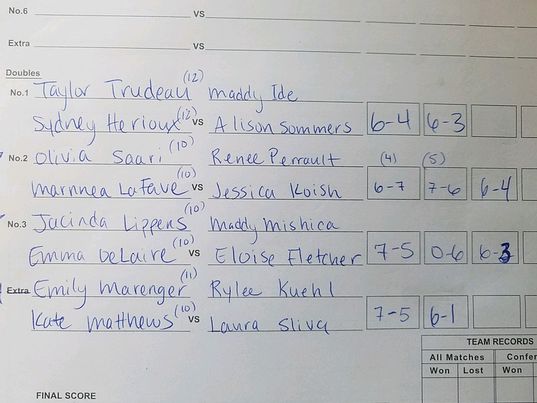 No.6 VS
Extra VS
Doubles
No.1 Taylor Trudeau (12) maddy Ide
Sydney Herioux (12) VS Alison Sommers 6-4 6-3
No.2 Olivia Saari (10) Renee Perrault (4) (5)
marnnea LaFave (10) VS Jessica Koish 6-7 7-6 6-4
No.3 Jacinda Lippens (10) maddy mishica
Emma DeLaire (10) VS Eloise Fletcher 7-5 0-6 6-3
Extra Emily marenger (11) Rylee Kuehl
Kate matthews (10) VS Laura Sliva 7-5 6-1
TEAM RECORDS
All Matches Confer
Won Lost Won
FINAL SCORE